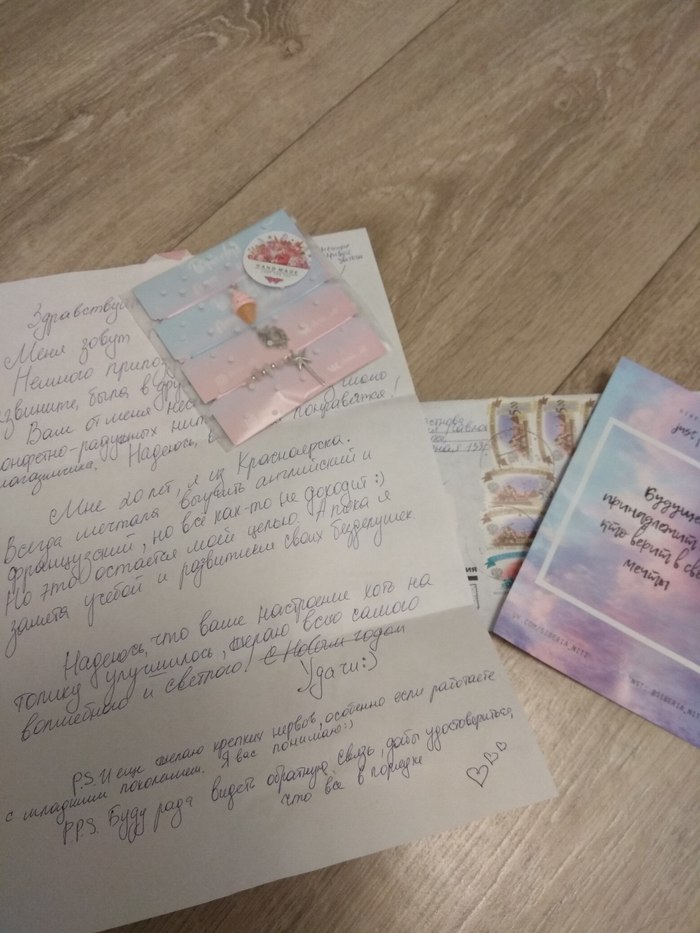 Здравствуй
Меня зовут
Немного припоз
извините, была в дру
Вам от меня нес
конфетно-радужных нит
магазинчика. Надеюсь, в понравятся!
Мне 20 лет, я из Красноярска.
Всегда мечтала выучить английский и
французский, но всё как-то не доходит:)
Но это остается моей целью. А пока я
занята учебой и развитием своих безделушек
Надеюсь, что ваше настроение хоть на
толику улучшилось, желаю всего самого
волшебного и светлого! С Новым годом
Удачи:)
P.S. И еще желаю крепких нервов, особенно если работаете
с младшим поколением. Я вас понимаю:)
P.P.S. Буду рада видеть обратную связь, дабы удостовериться,
что все в порядке
HAND MADE
Будущее
принадлежит
кто верит в св
мечты
VK.COM/SIBERIA_NITI
INST: @SIBERIA_NI